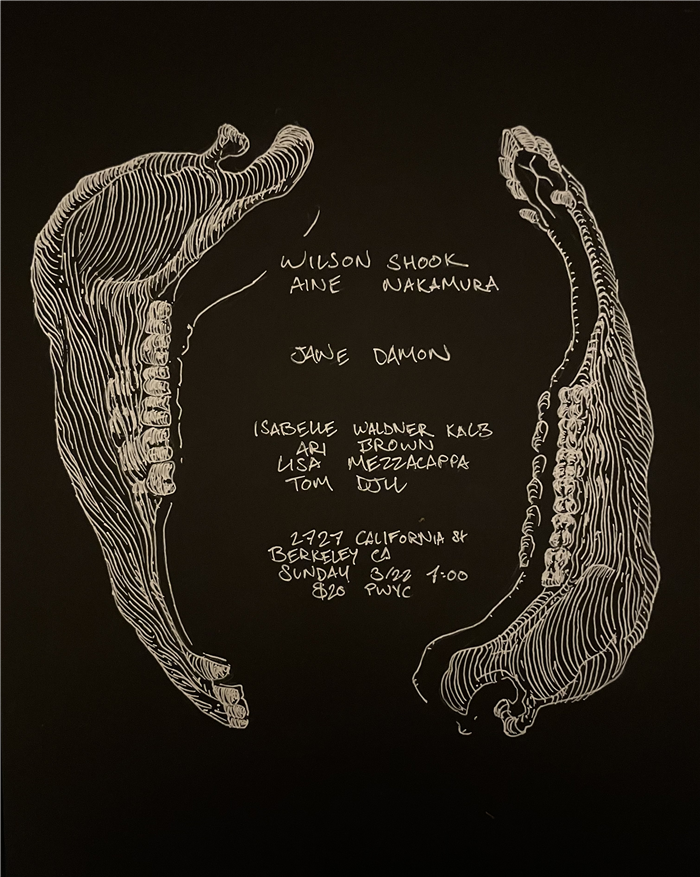 WILSON SHOOK
AINE NAKAMURA
JANE DAMON
ISABELLE WALDNER KALB
ARI BROWN
LISA MEZZACAPPA
TOM DJLL
2727 CALIFORNIA St
BERKELEY CA
SUNDAY 3/22
$20 PWYC